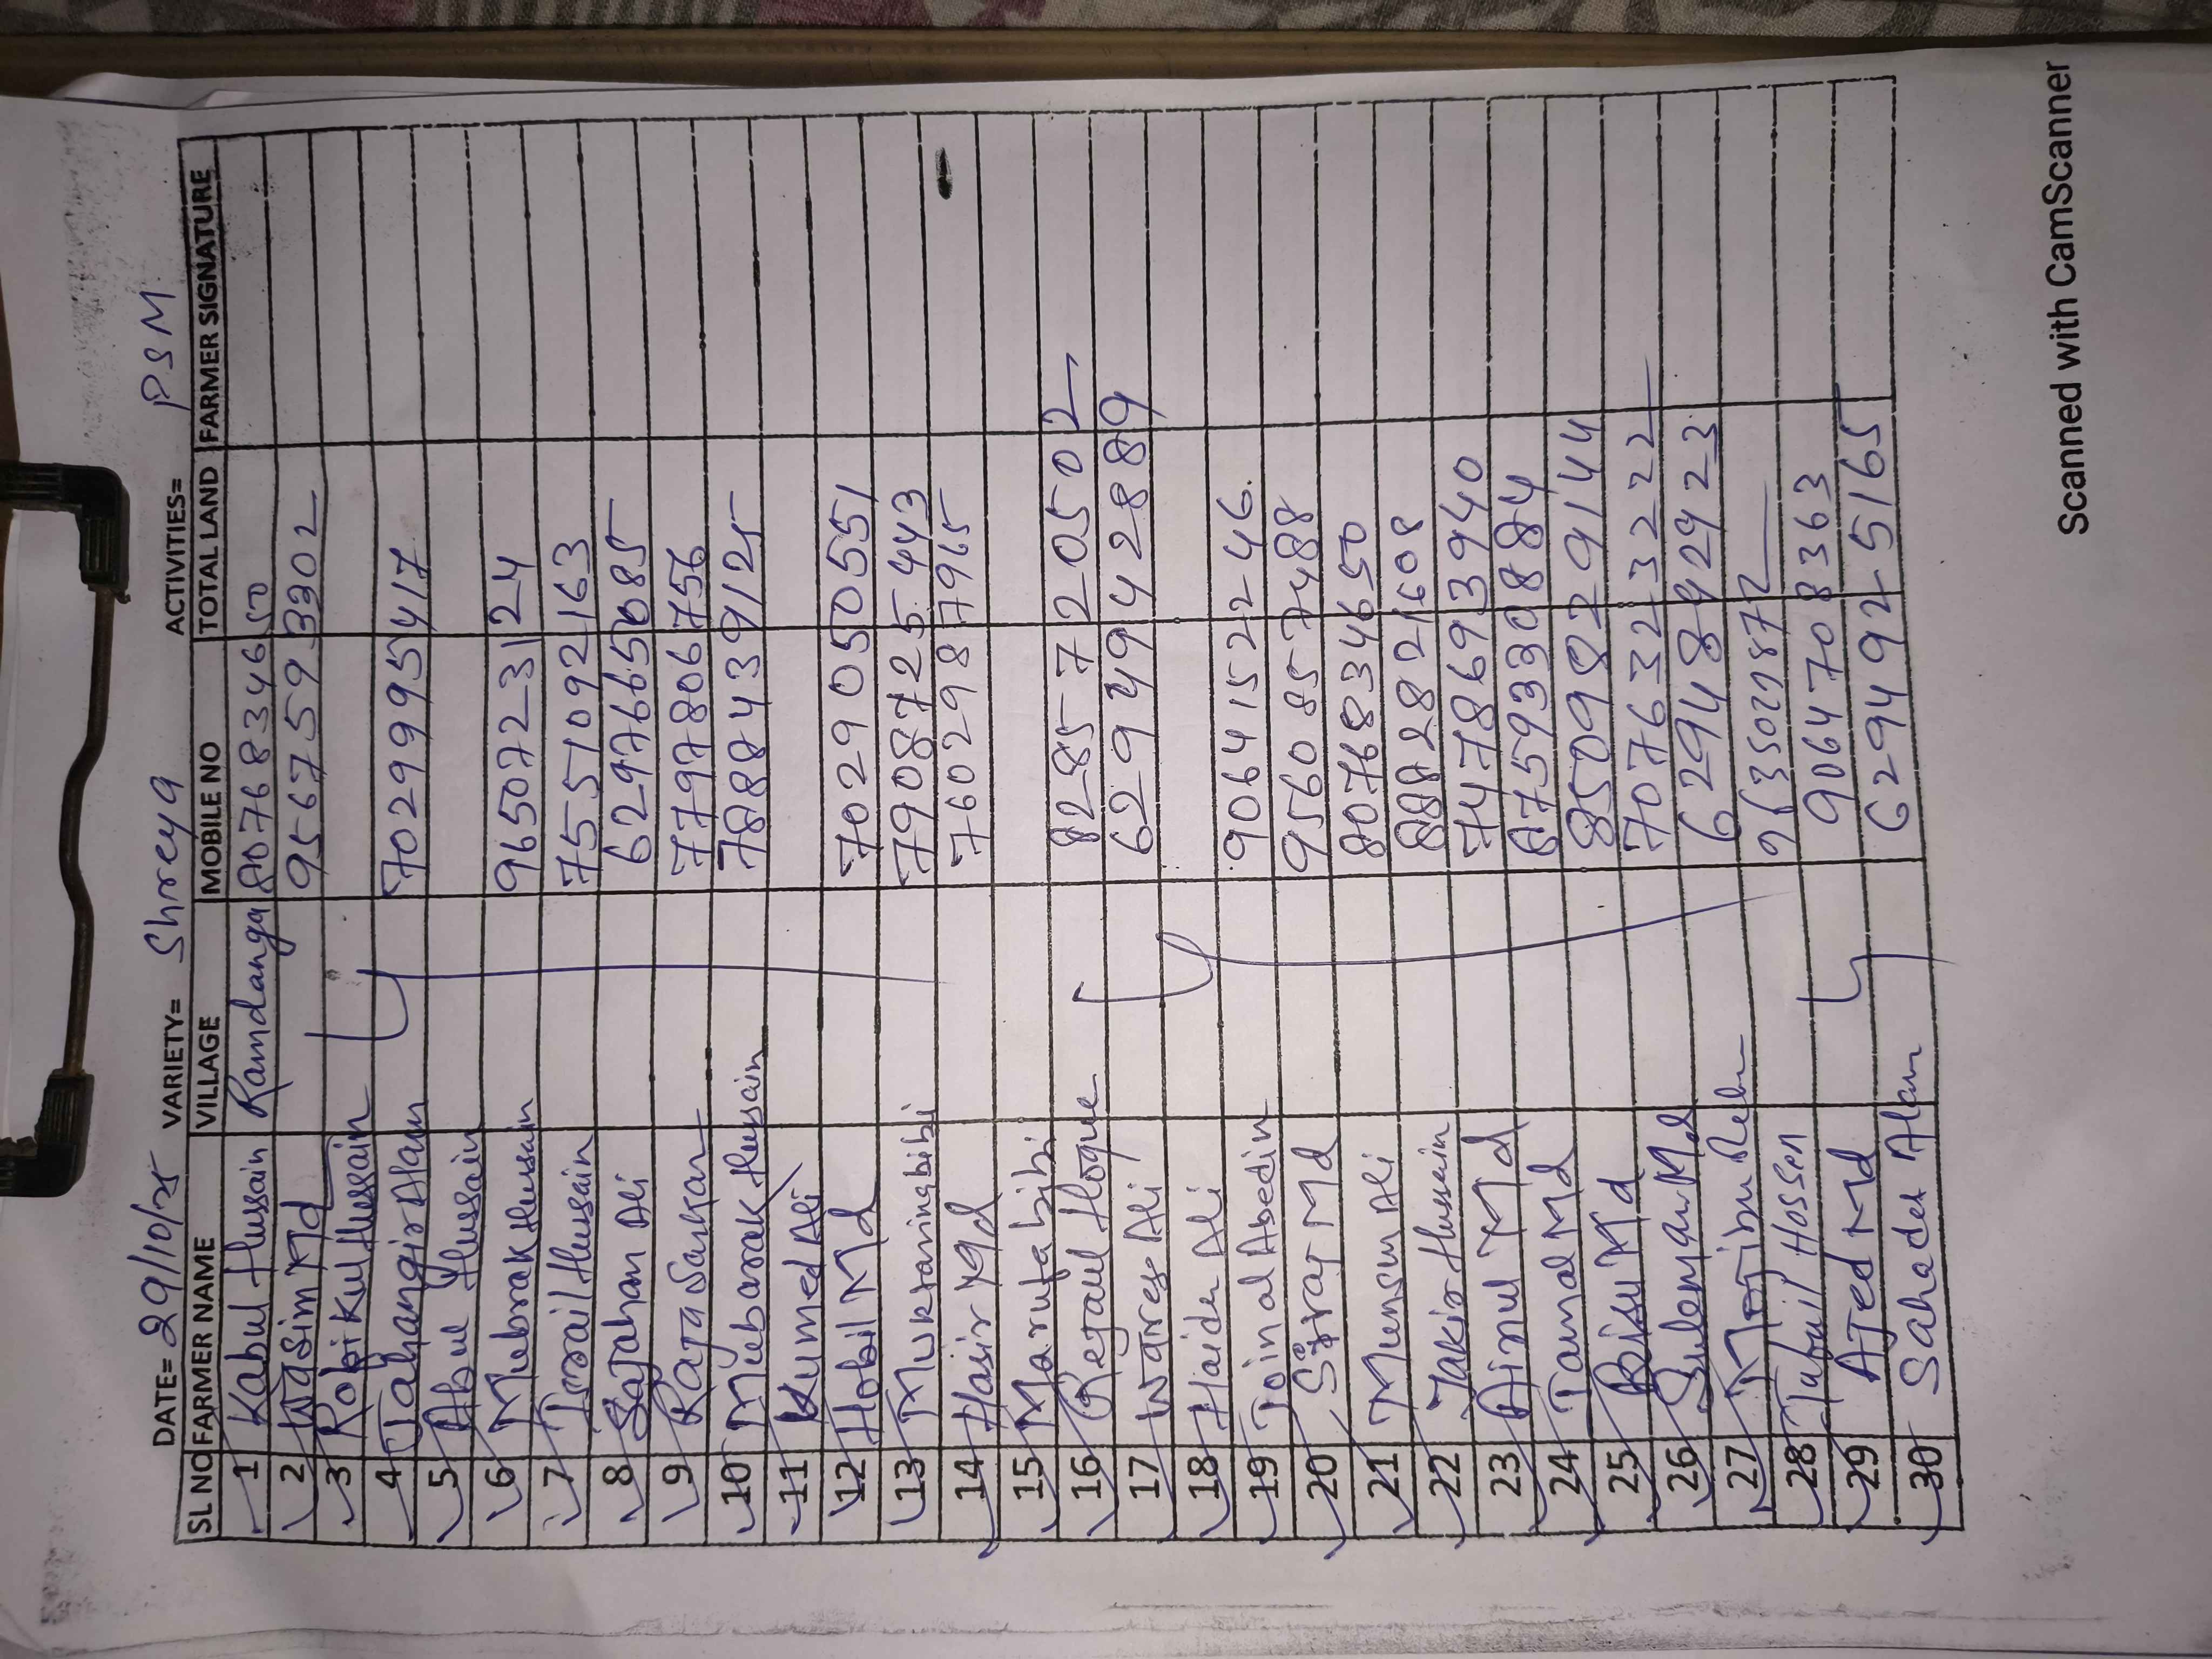 DATE= 29/10/25 VARIETY= Shreya ACTIVITIES= PSM
SL NO FARMER NAME VILLAGE MOBILE NO TOTAL LAND FARMER SIGNATURE
1 Kabul Hussain Ramdanga 8076834650
2 Wasim Md 9567593302
3 Robikul Hussain
4 Jahangir Alam 7029995417
5 Abul Hussain
6 Mubrak Hussain 9650723124
7 Israil Hussain 7551092163
8 Sajahan Ali 6297665085
9 Raja Sarkar 7797806756
10 Mubarak Hussain 7884439125
11 Kumed Ali
12 Hobil Md 7029050551
13 Muktaringbibi 7908725443
14 Hasir Md 7602987965
15 Marufa bibi
16 Rejaul Hoque 8285720502
17 Wares Ali 6294942889
18 Haider Ali
19 Joinal Abedin 9064152246
20 Siraj Md 9560857488
21 Munsur Ali 8076834650
22 Jakir Hussain 8882821608
23 Ainul Md 7478693940
24 Jamal Md 8759330884
25 Bisu Md 8509829144
26 Suleman Md 7076323222
27 Mojibu Reh 6294842923
28 Tufuil Hossen 9635029872
29 AJed Md 9064708363
30 Sahadet Alam 6294925165
Scanned with CamScanner